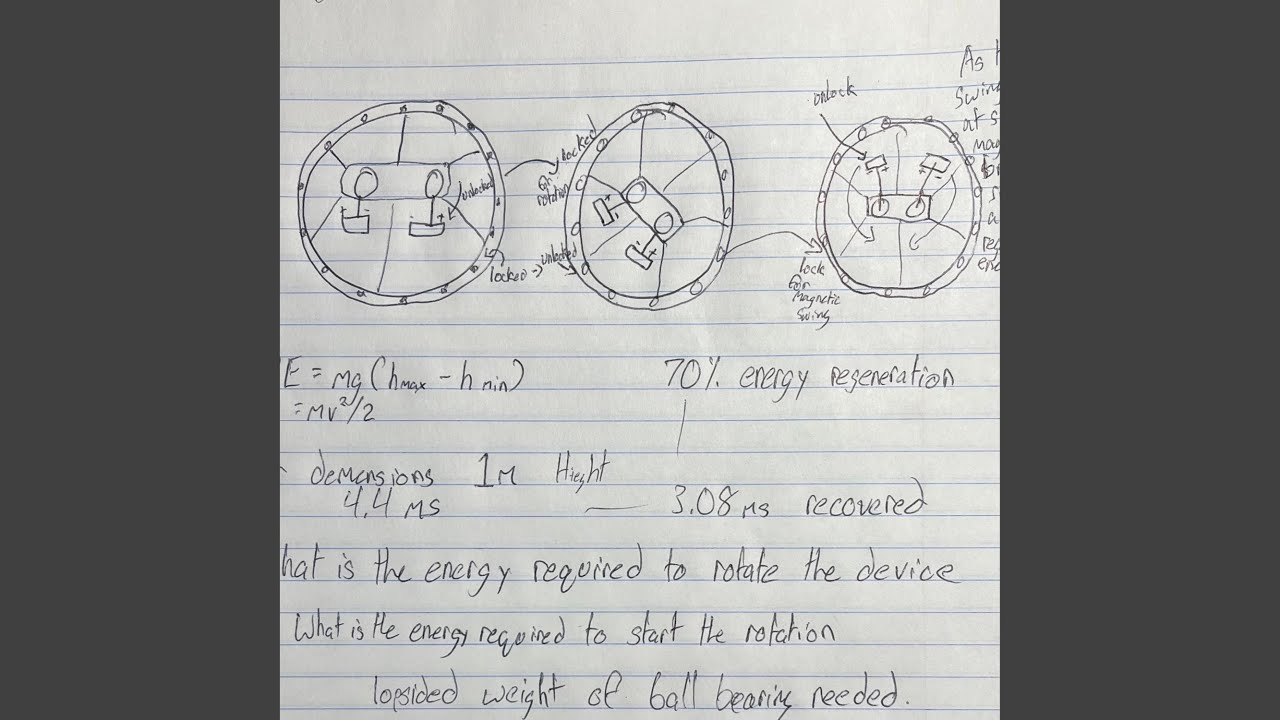 unlock
As
Swing
at s
mag
unlocked
locked
for
rotation
locked -> unlocked
lock
for
Magnetic
Swing
E = mg(hmax - hmin)
= mv²/2
70% energy regeneration
demensions 1m Hieght
4.4 ms
3.08 ms recovered
hat is the energy required to rotate the device
What is the energy required to start the rotation
lopsided weight of ball bearing needed.